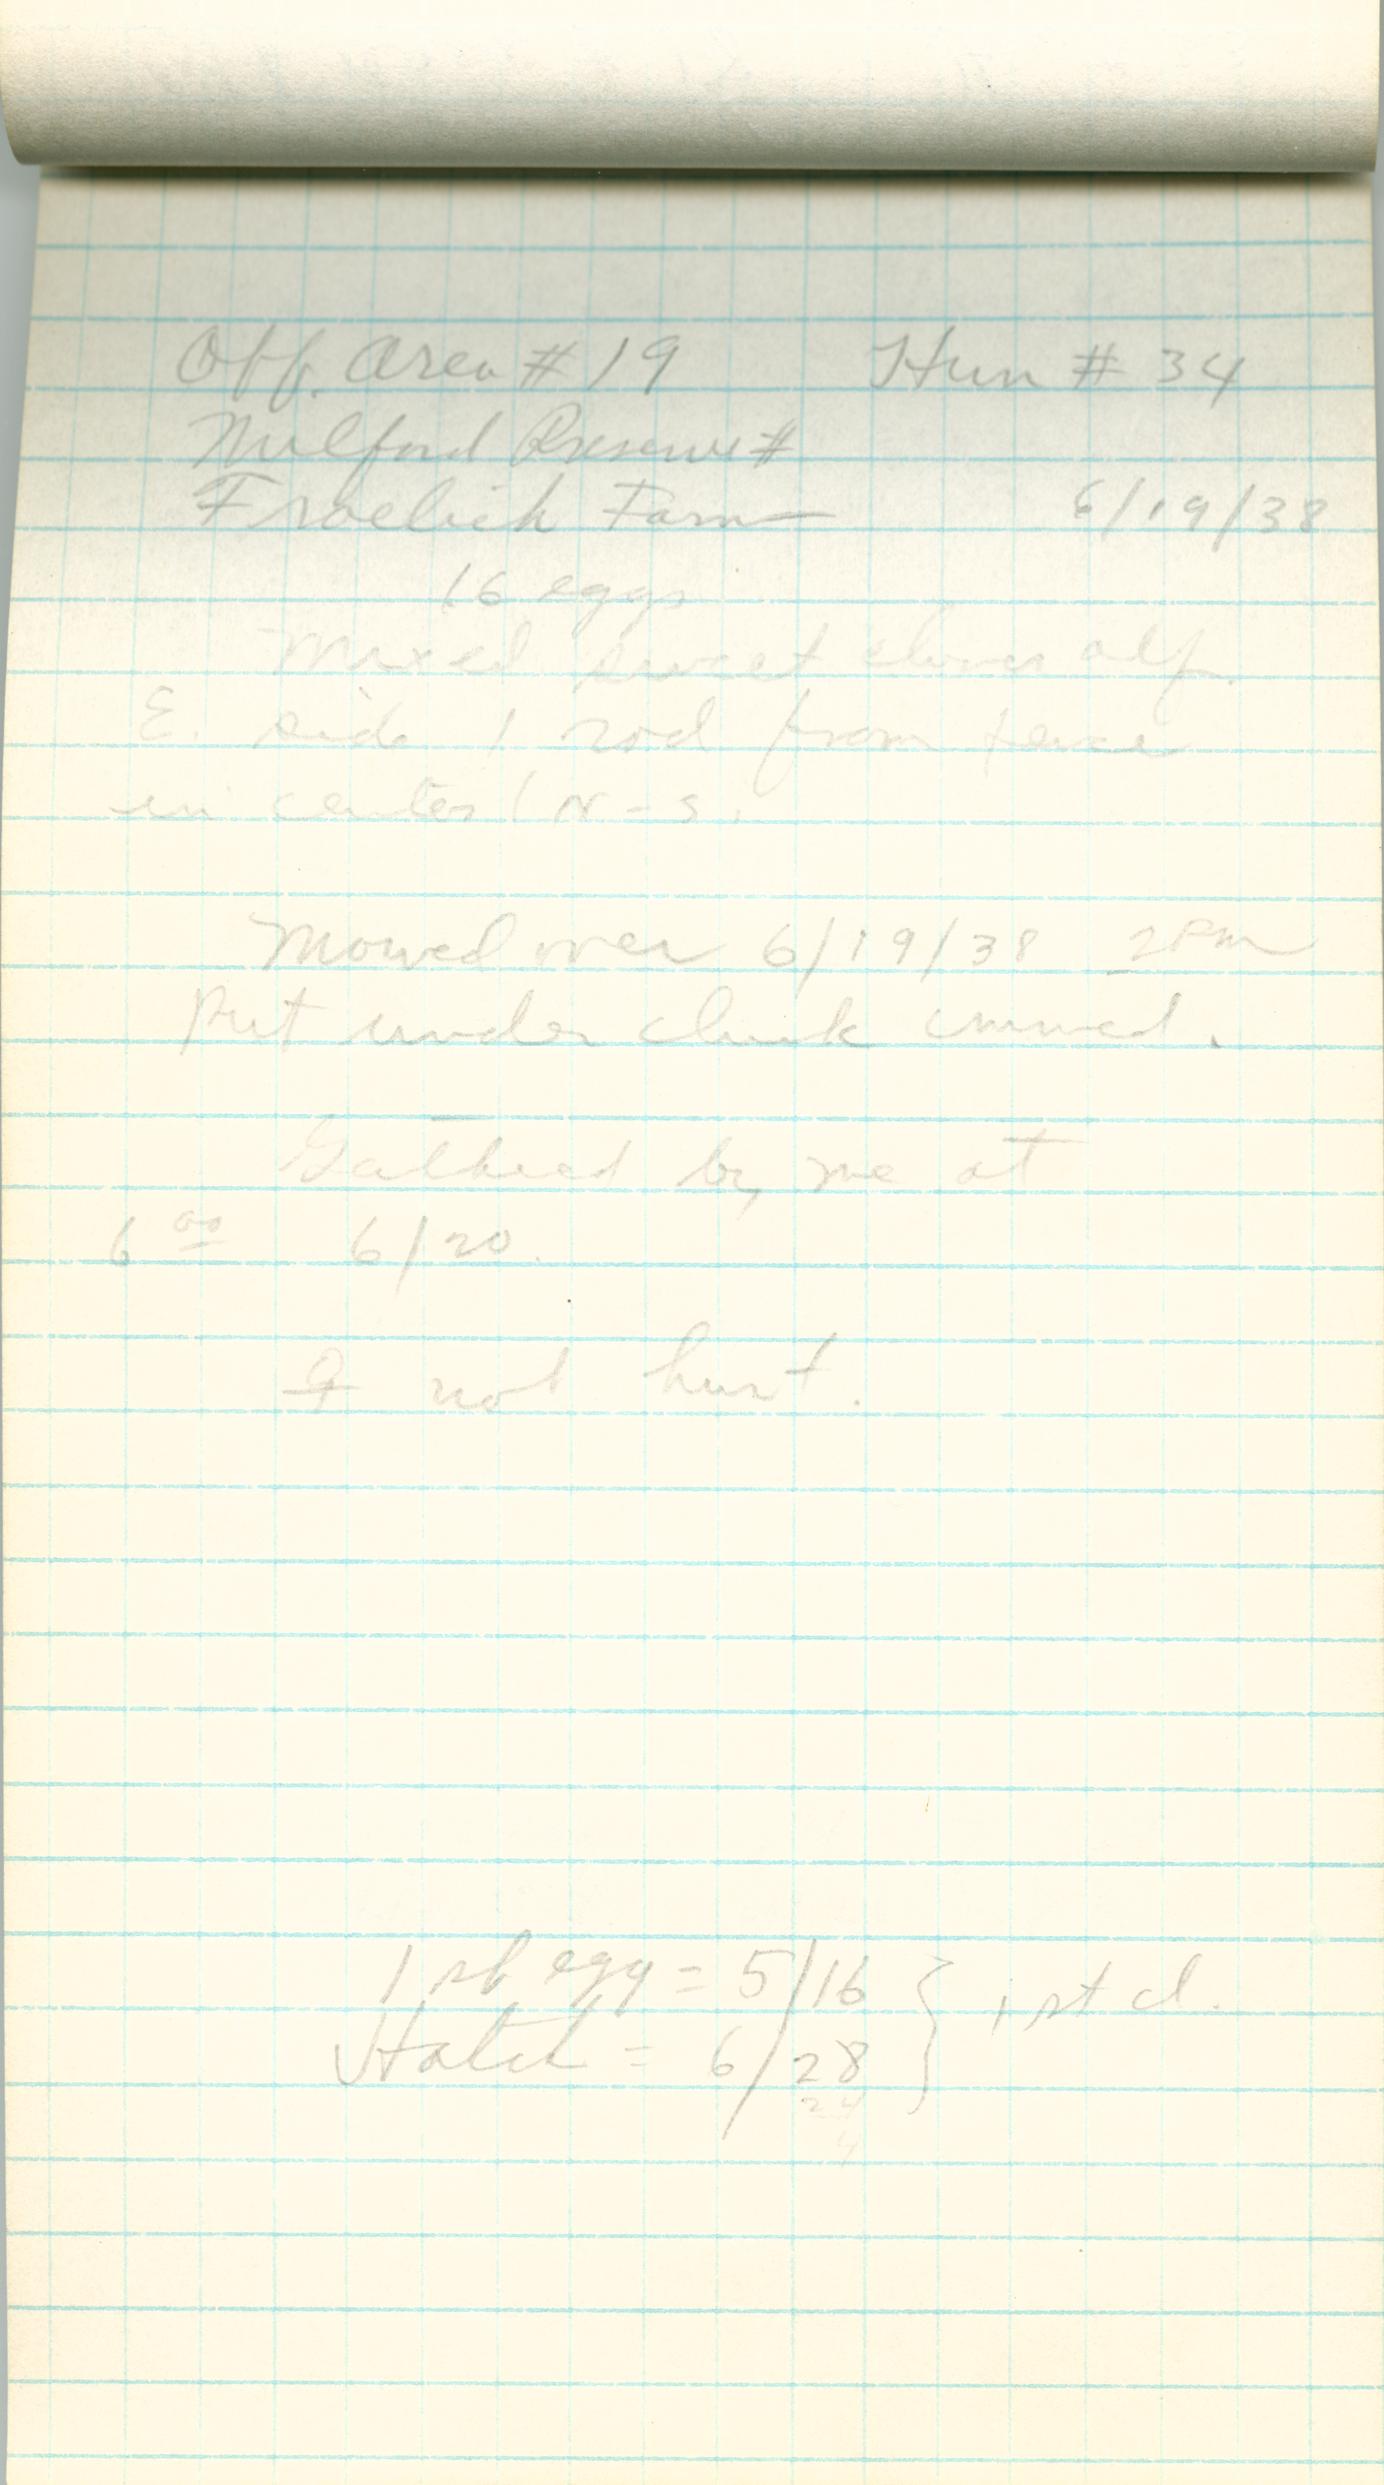 Off. Area # 19 Hun # 34
Milford Reserve #
Froelich Farm 6/19/38
16 eggs
Mixed sweet clover alf.
E. side 1 rod from fence
in center (N-S.
Mowed over 6/19/38 2 PM
Put under cluck immed.
Gathered by me at
6 00 6/20.
♀ not hurt.
1 st egg = 5/16 } 1 st cl.
Hatch = 6/28
24
4